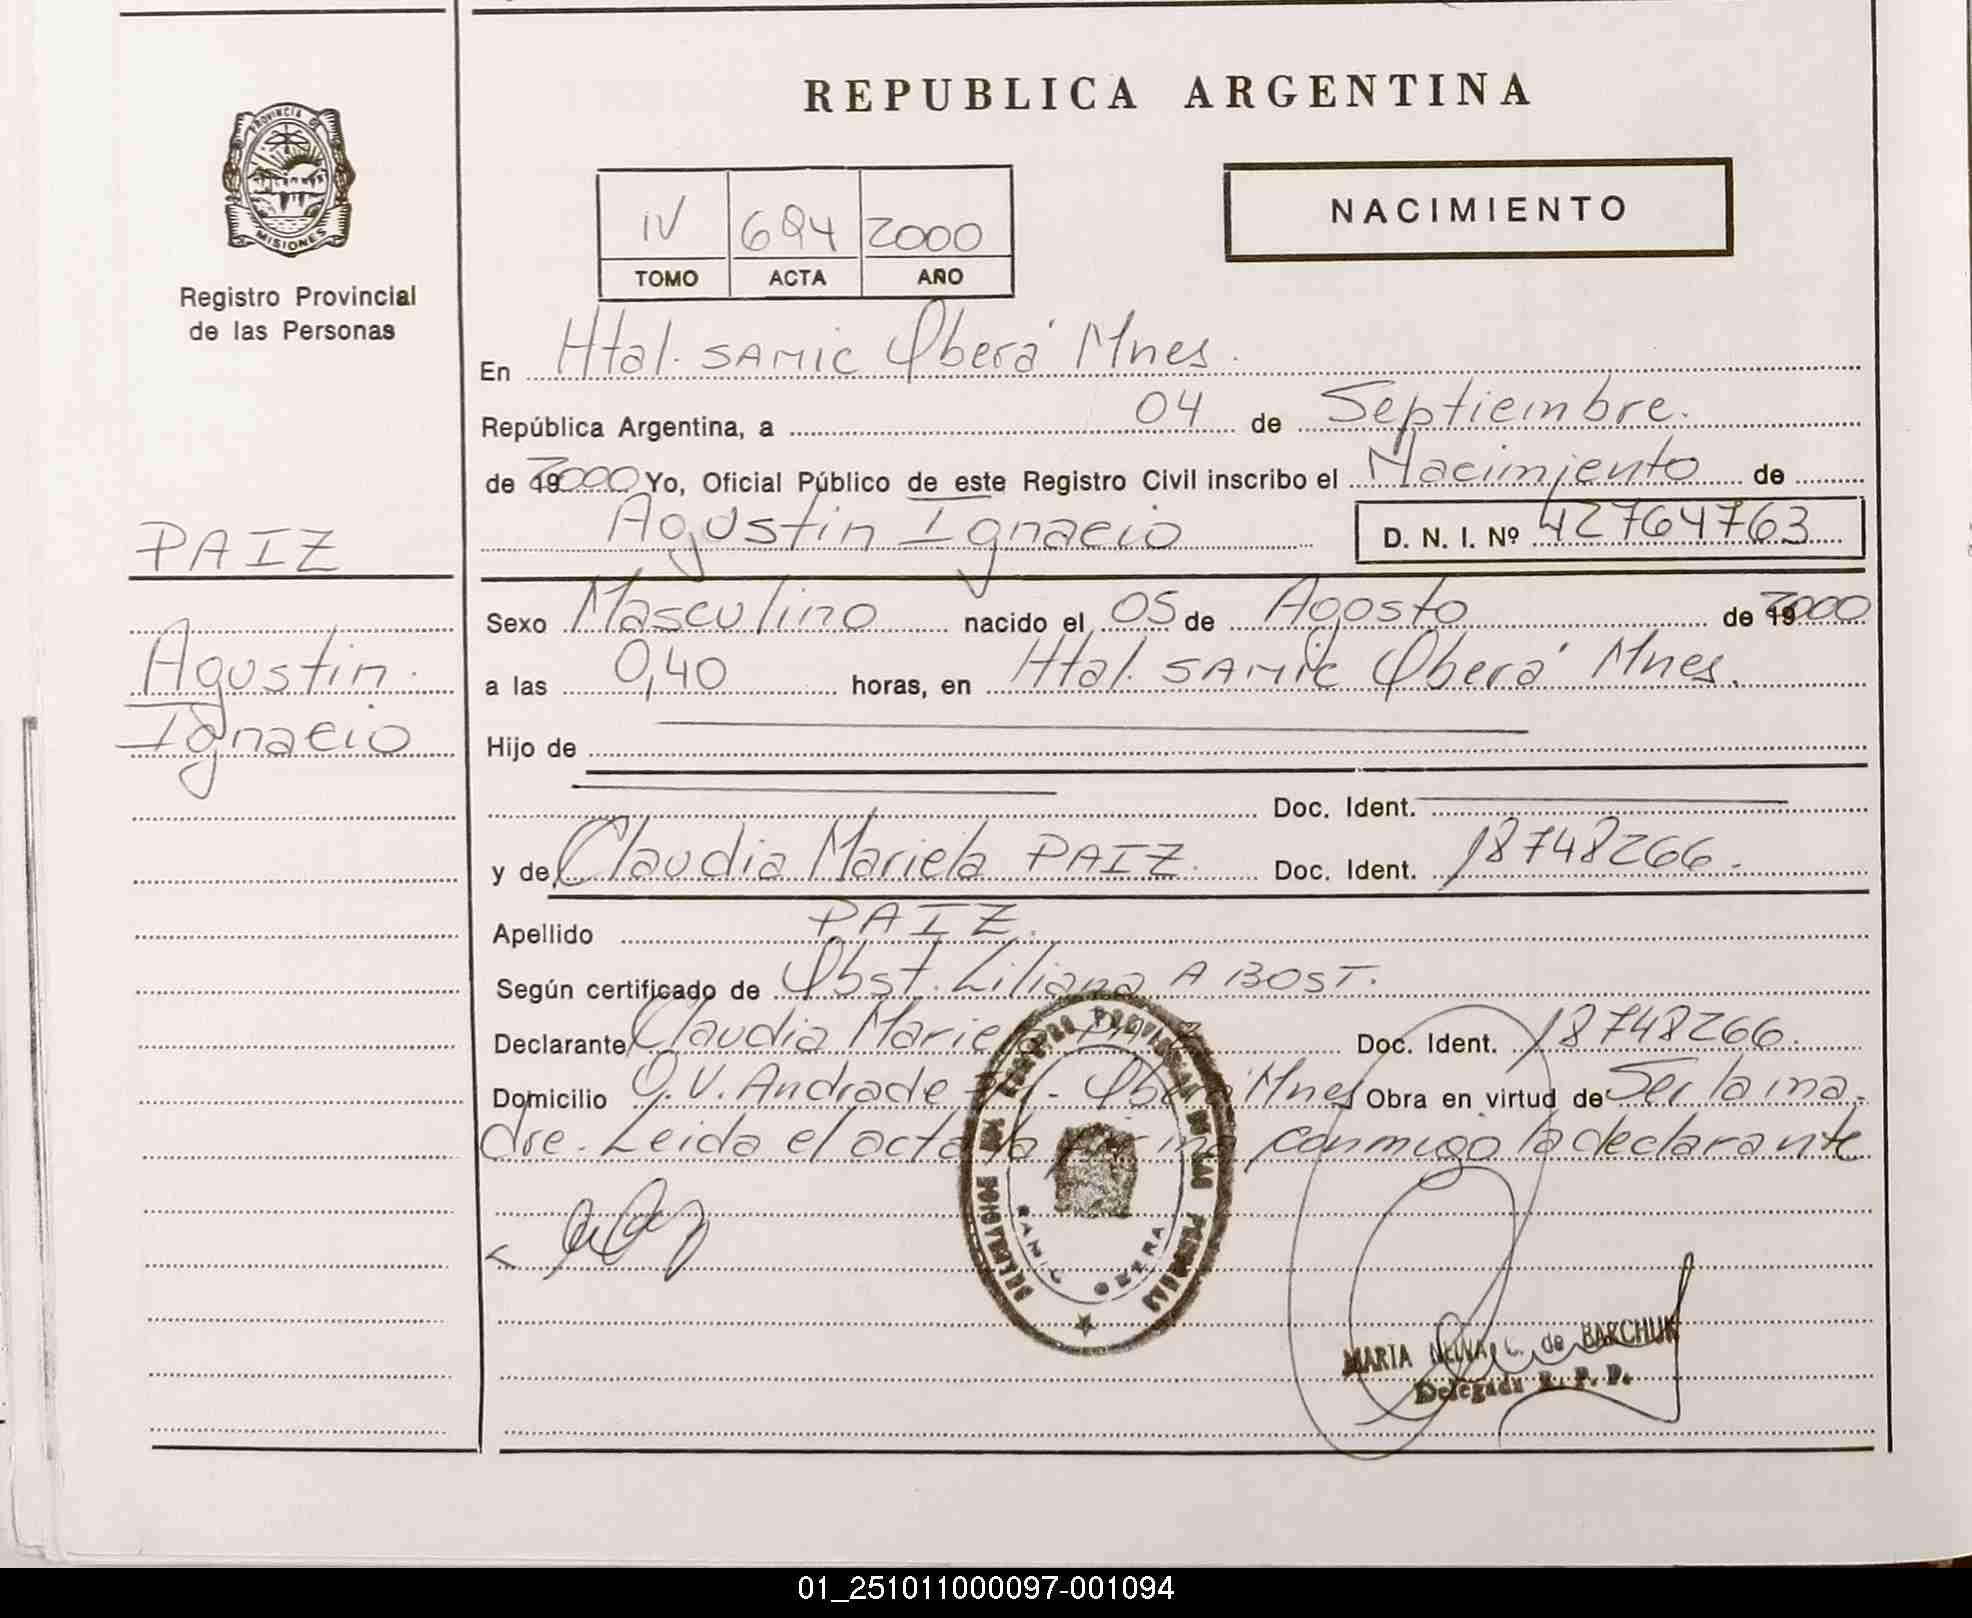 REPUBLICA ARGENTINA
PROVINCIA DE
MISIONES
Registro Provincial
de las Personas
IV 694 2000
TOMO ACTA AÑO
NACIMIENTO
En Htal. SAMIC Oberá Mnes.
República Argentina, a 04 de Septiembre.
de 2000 Yo, Oficial Público de este Registro Civil inscribo el Nacimiento de
Agustin Ignacio D. N. I. Nº 42764763
PAIZ
Agustin
Ignacio
Sexo Masculino nacido el 05 de Agosto de 2000
a las 0,40 horas, en Htal. SAMIC Oberá Mnes.
Hijo de
Doc. Ident.
y de Claudia Mariela PAIZ. Doc. Ident. 18748266.
Apellido PAIZ.
Según certificado de Obst. Liliana A BOST.
Declarante Claudia Mariela PAIZ Doc. Ident. 18748266.
Domicilio O.V. Andrade - Oberá Mnes Obra en virtud de Ser la ma-
dre. Leida el acta la firma conmigo la declarante
REGISTRO PROVINCIAL DE LAS PERSONAS
DELEGACION
SAMIC OBERA
MARIA C. de BARCHUK
Delegada R. P. P.
01_251011000097-001094